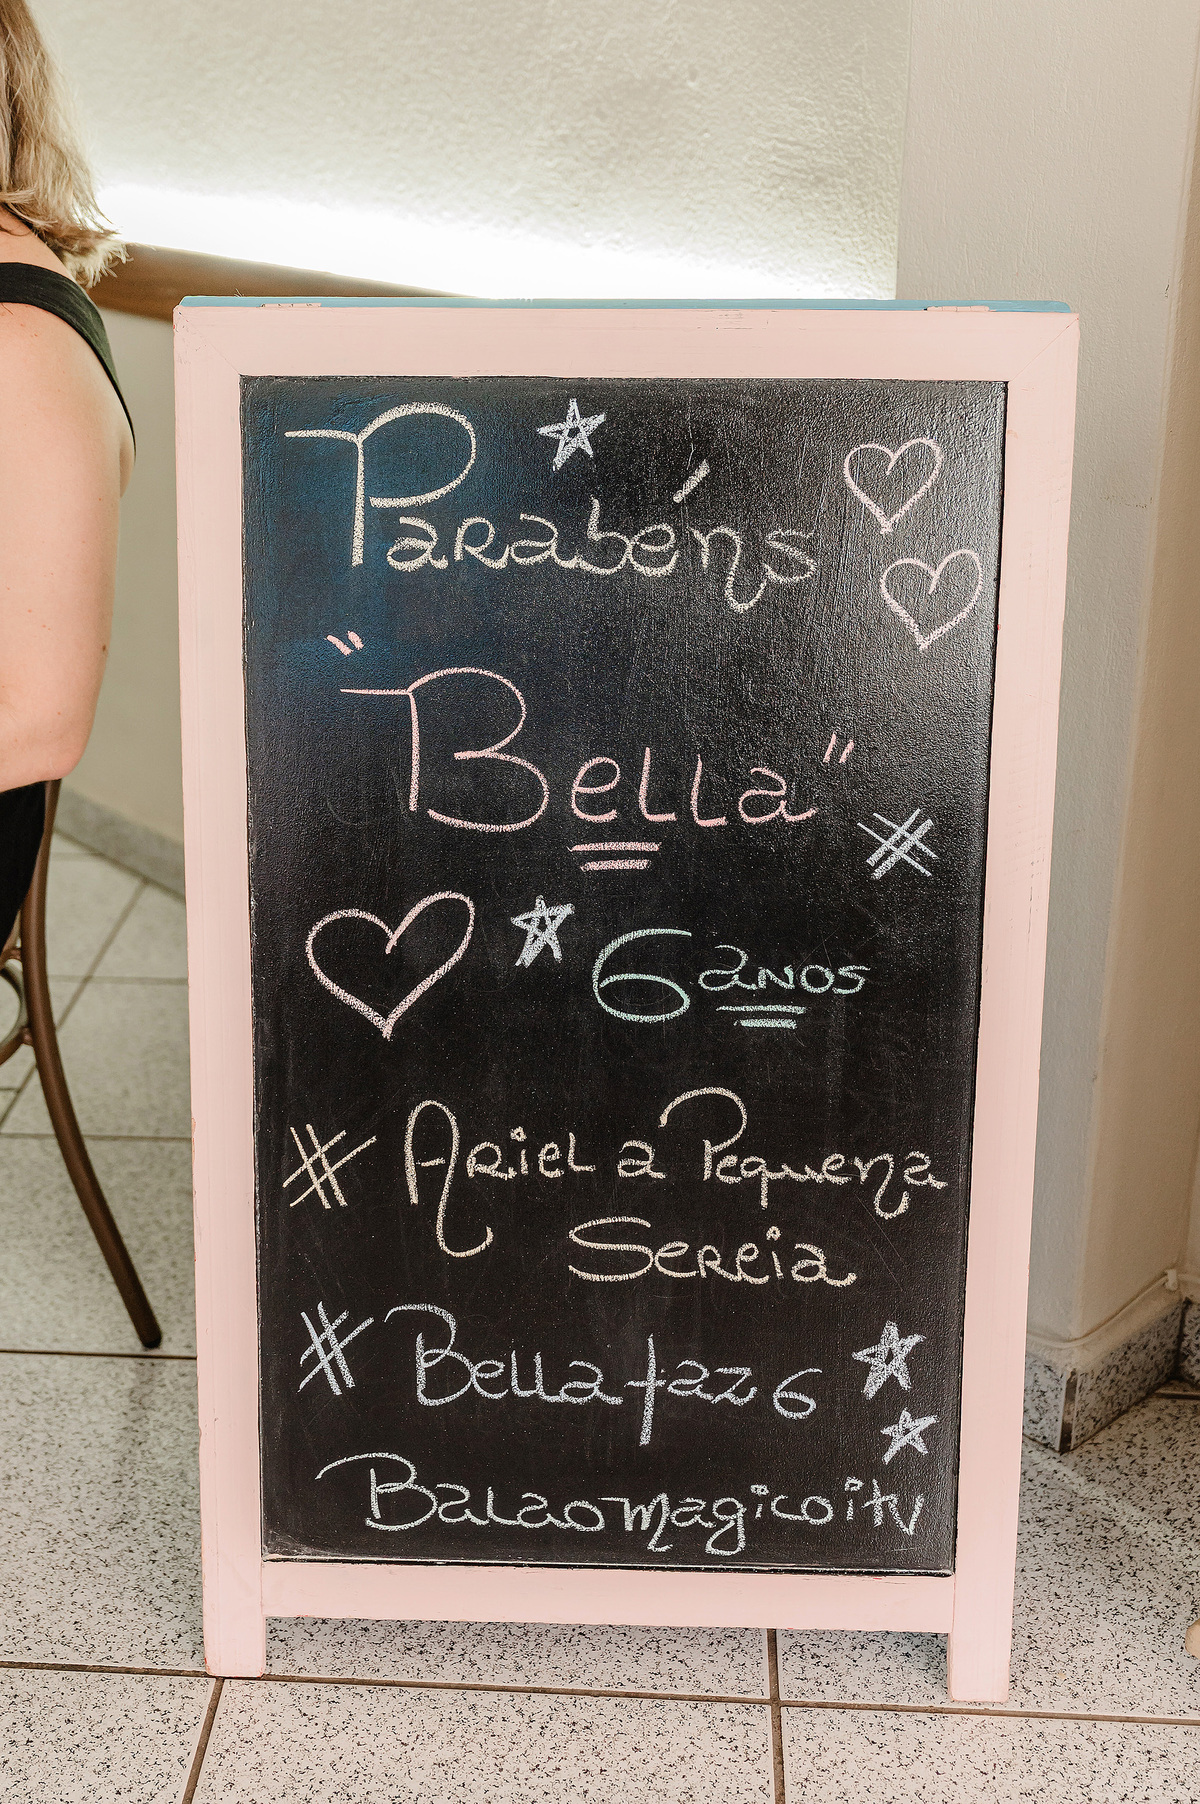 Parabéns
"Bella"
6 anos
# Ariel a Pequena
Sereia
# Bella faz 6
Balaomagicoitv